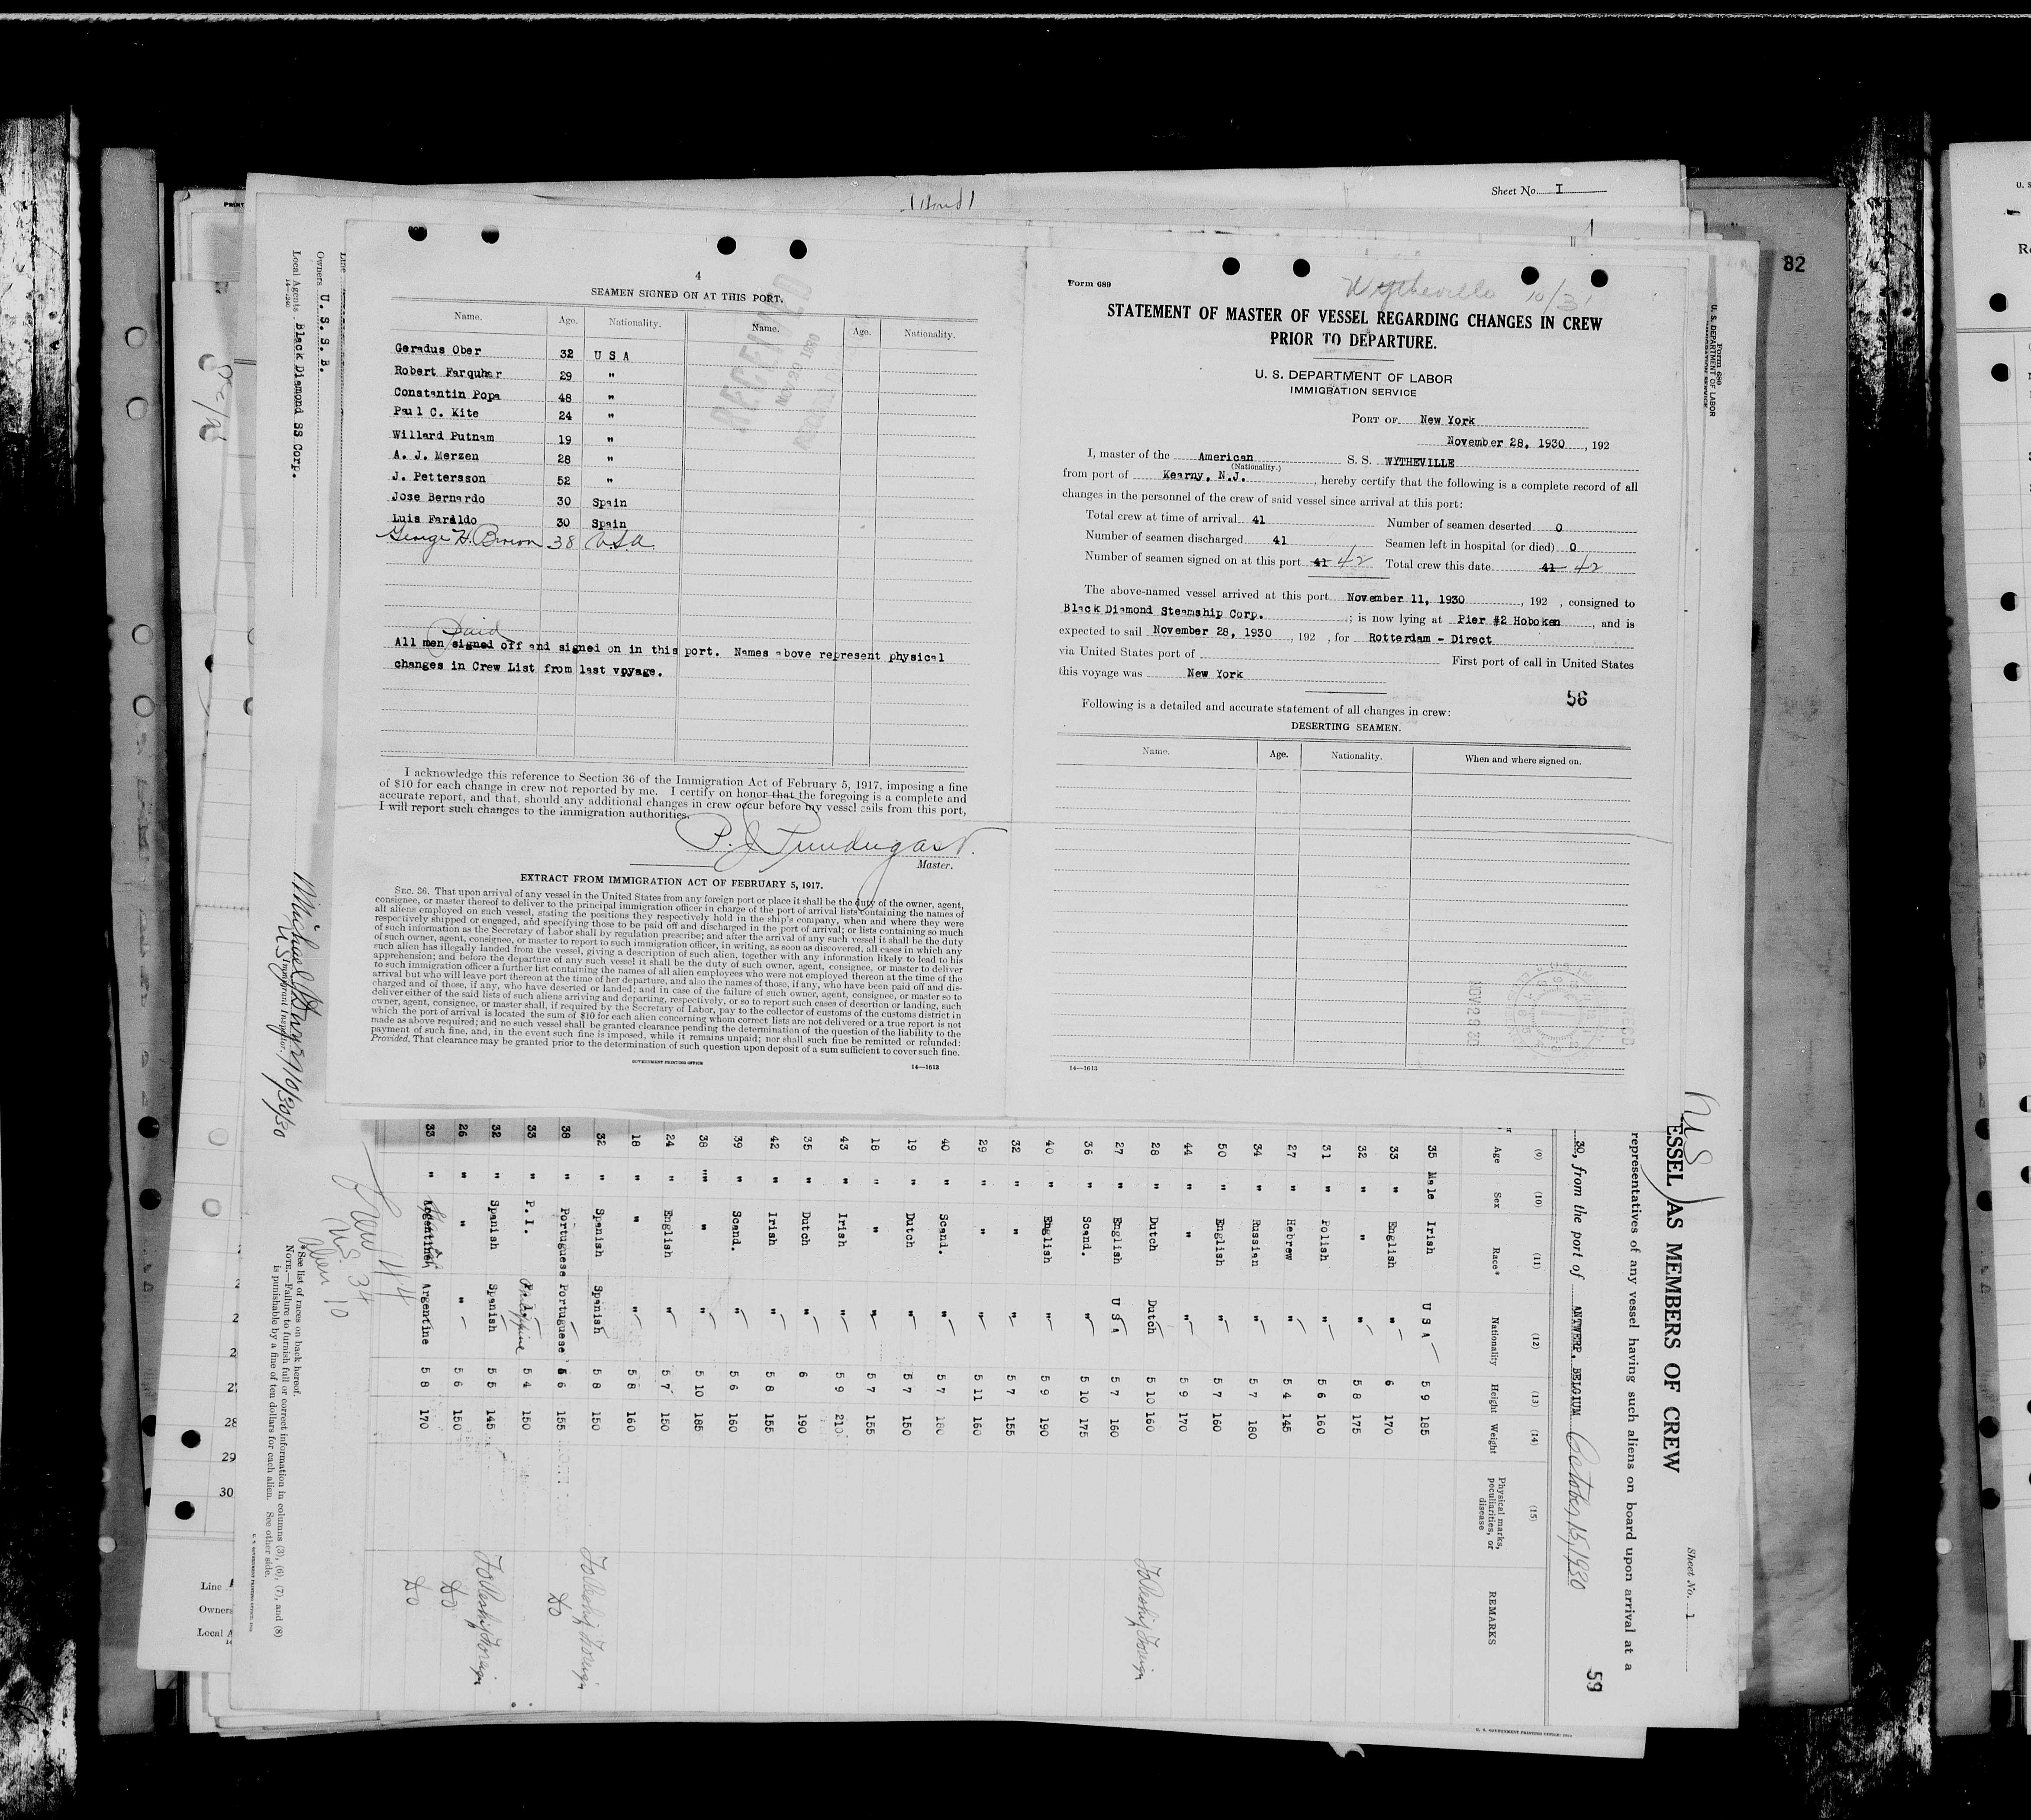 82
Sheet No. I
4
SEAMEN SIGNED ON AT THIS PORT.
Name. Age. Nationality. Name. Age. Nationality.
Geradus Ober 32 U S A
Robert Farquhar 29 "
Constantin Popa 48 "
Paul C. Kite 24 "
Willard Putnam 19 "
A. J. Merzen 28 "
J. Pettersson 52 "
Jose Bernardo 30 Spain
Luis Faraldo 30 Spain
George H. Brown 38 U.S.A.
Paid
All men signed off and signed on in this port. Names above represent physical
changes in Crew List from last voyage.
RECEIVED
I acknowledge this reference to Section 36 of the Immigration Act of February 5, 1917, imposing a fine
of $10 for each change in crew not reported by me. I certify on honor that the foregoing is a complete and
accurate report, and that, should any additional changes in crew occur before my vessel sails from this port,
I will report such changes to the immigration authorities.
Master.
EXTRACT FROM IMMIGRATION ACT OF FEBRUARY 5, 1917.
SEC. 36. That upon arrival of any vessel in the United States from any foreign port or place it shall be the duty of the owner, agent,
consignee, or master thereof to deliver to the principal immigration officer in charge of the port of arrival lists containing the names of
all aliens employed on such vessel, stating the positions they respectively hold in the ship's company, when and where they were
respectively shipped or engaged, and specifying those to be paid off and discharged in the port of arrival; or lists containing so much
of such information as the Secretary of Labor shall by regulation prescribe; and after the arrival of any such vessel it shall be the duty
of such owner, agent, consignee, or master to report to such immigration officer, in writing, as soon as discovered, all cases in which any
such alien has illegally landed from the vessel, giving a description of such alien, together with any information likely to lead to his
apprehension; and before the departure of any such vessel it shall be the duty of such owner, agent, consignee, or master to deliver
to such immigration officer a further list containing the names of all alien employees who were not employed thereon at the time of the
arrival but who will leave port thereon at the time of her departure, and also the names of those, if any, who have been paid off and dis-
charged and of those, if any, who have deserted or landed; and in case of the failure of such owner, agent, consignee, or master so to
deliver either of the said lists of such aliens arriving and departing, respectively, or so to report such cases of desertion or landing, such
owner, agent, consignee, or master shall, if required by the Secretary of Labor, pay to the collector of customs of the customs district in
which the port of arrival is located the sum of $10 for each alien concerning whom correct lists are not delivered or a true report is not
made as above required; and no such vessel shall be granted clearance pending the determination of the question of the liability to the
payment of such fine, and, in the event such fine is imposed, while it remains unpaid; nor shall such fine be remitted or refunded:
Provided, That clearance may be granted prior to the determination of such question upon deposit of a sum sufficient to cover such fine.
GOVERNMENT PRINTING OFFICE
14—1613
Form 689
Wytheville 10/31
STATEMENT OF MASTER OF VESSEL REGARDING CHANGES IN CREW
PRIOR TO DEPARTURE.
U. S. DEPARTMENT OF LABOR
IMMIGRATION SERVICE
PORT OF New York
November 28, 1930, 192
I, master of the American S. S. WYTHEVILLE
(Nationality.)
from port of Kearny, N.J., hereby certify that the following is a complete record of all
changes in the personnel of the crew of said vessel since arrival at this port:
Total crew at time of arrival 41 Number of seamen deserted 0
Number of seamen discharged 41 Seamen left in hospital (or died) 0
Number of seamen signed on at this port 41 42 Total crew this date 41 42
The above-named vessel arrived at this port November 11, 1930, 192 , consigned to
Black Diamond Steamship Corp. ; is now lying at Pier #2 Hoboken, and is
expected to sail November 28, 1930, 192 , for Rotterdam - Direct
via United States port of First port of call in United States
this voyage was New York
56
Following is a detailed and accurate statement of all changes in crew:
DESERTING SEAMEN.
Name. Age. Nationality. When and where signed on.
14—1613
Form 680
U. S. DEPARTMENT OF LABOR
IMMIGRATION SERVICE
Owners U. S. S. B.
Local Agents Black Diamond SS Corp.
14—1240
Immigrant Inspector.
Sheet No. 1
ESSEL AS MEMBERS OF CREW
representatives of any vessel having such aliens on board upon arrival at a
30, from the port of ANTWERP, BELGIUM October 15, 1930
59
(9) (10) (11) (12) (13) (14) (15)
Age Sex Race* Nationality Height Weight Physical marks, peculiarities, or disease REMARKS
35 Male Irish U S A 5 9 185
33 " English " 6 170
32 " " " 5 8 175
31 " Polish " 5 6 160
27 " Hebrew " 5 4 145
34 " Russian " 5 7 180
50 " English " 5 7 160
44 " " " 5 9 170
28 " Dutch Dutch 5 10 160 To Reship Foreign
27 " English U S A 5 7 160
36 " Scand. " 5 10 175
40 " English " 5 9 190
32 " " " 5 7 155
29 " " " 5 11 160
40 " Scand. " 5 7 180
19 " Dutch " 5 7 150
18 " " " 5 7 155
43 " Irish " 5 9 210
35 " Dutch " 6 190
42 " Irish " 5 8 155
39 " Scand. " 5 6 160
38 " " " 5 10 185
24 " English " 5 7 150
18 " " " 5 8 160
32 " Spanish Spanish 5 8 150 To Reship Foreign
38 " Portuguese Portuguese 5 6 155 Do
33 " P. I. Philippine 5 4 150
32 " Spanish Spanish 5 5 145 To Reship Foreign
26 " " " 5 6 150 Do
33 " Argentine 5 8 170 Do
Crew 44
U.S. 34
Alien 10
*See list of races on back hereof.
NOTE.—Failure to furnish full or correct information in columns (3), (6), (7), and (8)
is punishable by a fine of ten dollars for each alien. See other side.
28
29
30
Line
Owners
Local A